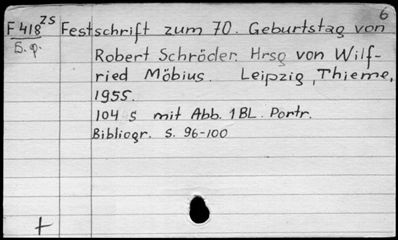 6
F 418 ZS Festschrift zum 70. Geburtstag von
5. q. Robert Schröder. Hrsg von Wilf-
ried Möbius. Leipzig, Thieme,
1955.
104 S mit Abb. 1 BL. Portr.
Bibliogr. S. 96-100